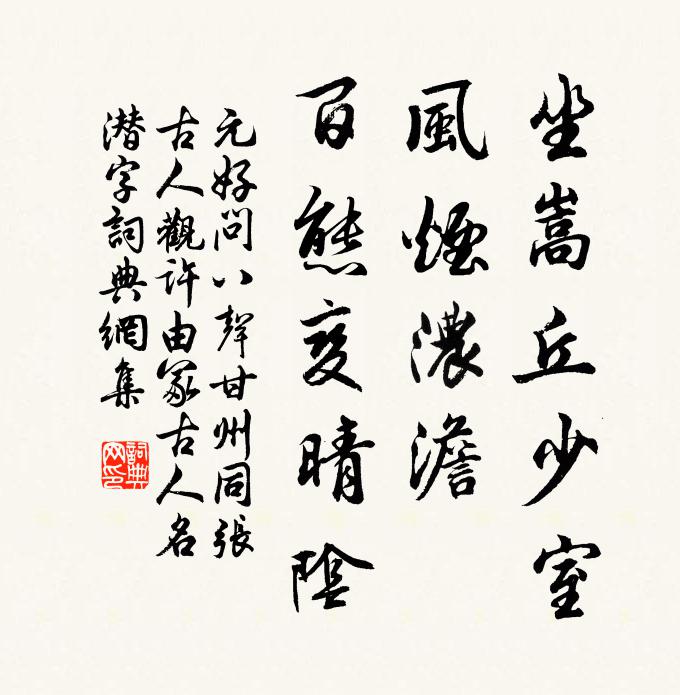 坐嵩丘少室
風煙濃澹
百態變晴陰
元好問八聲甘州同張
古人觀許由冢古人名
潜字詞典網集
詞典網印